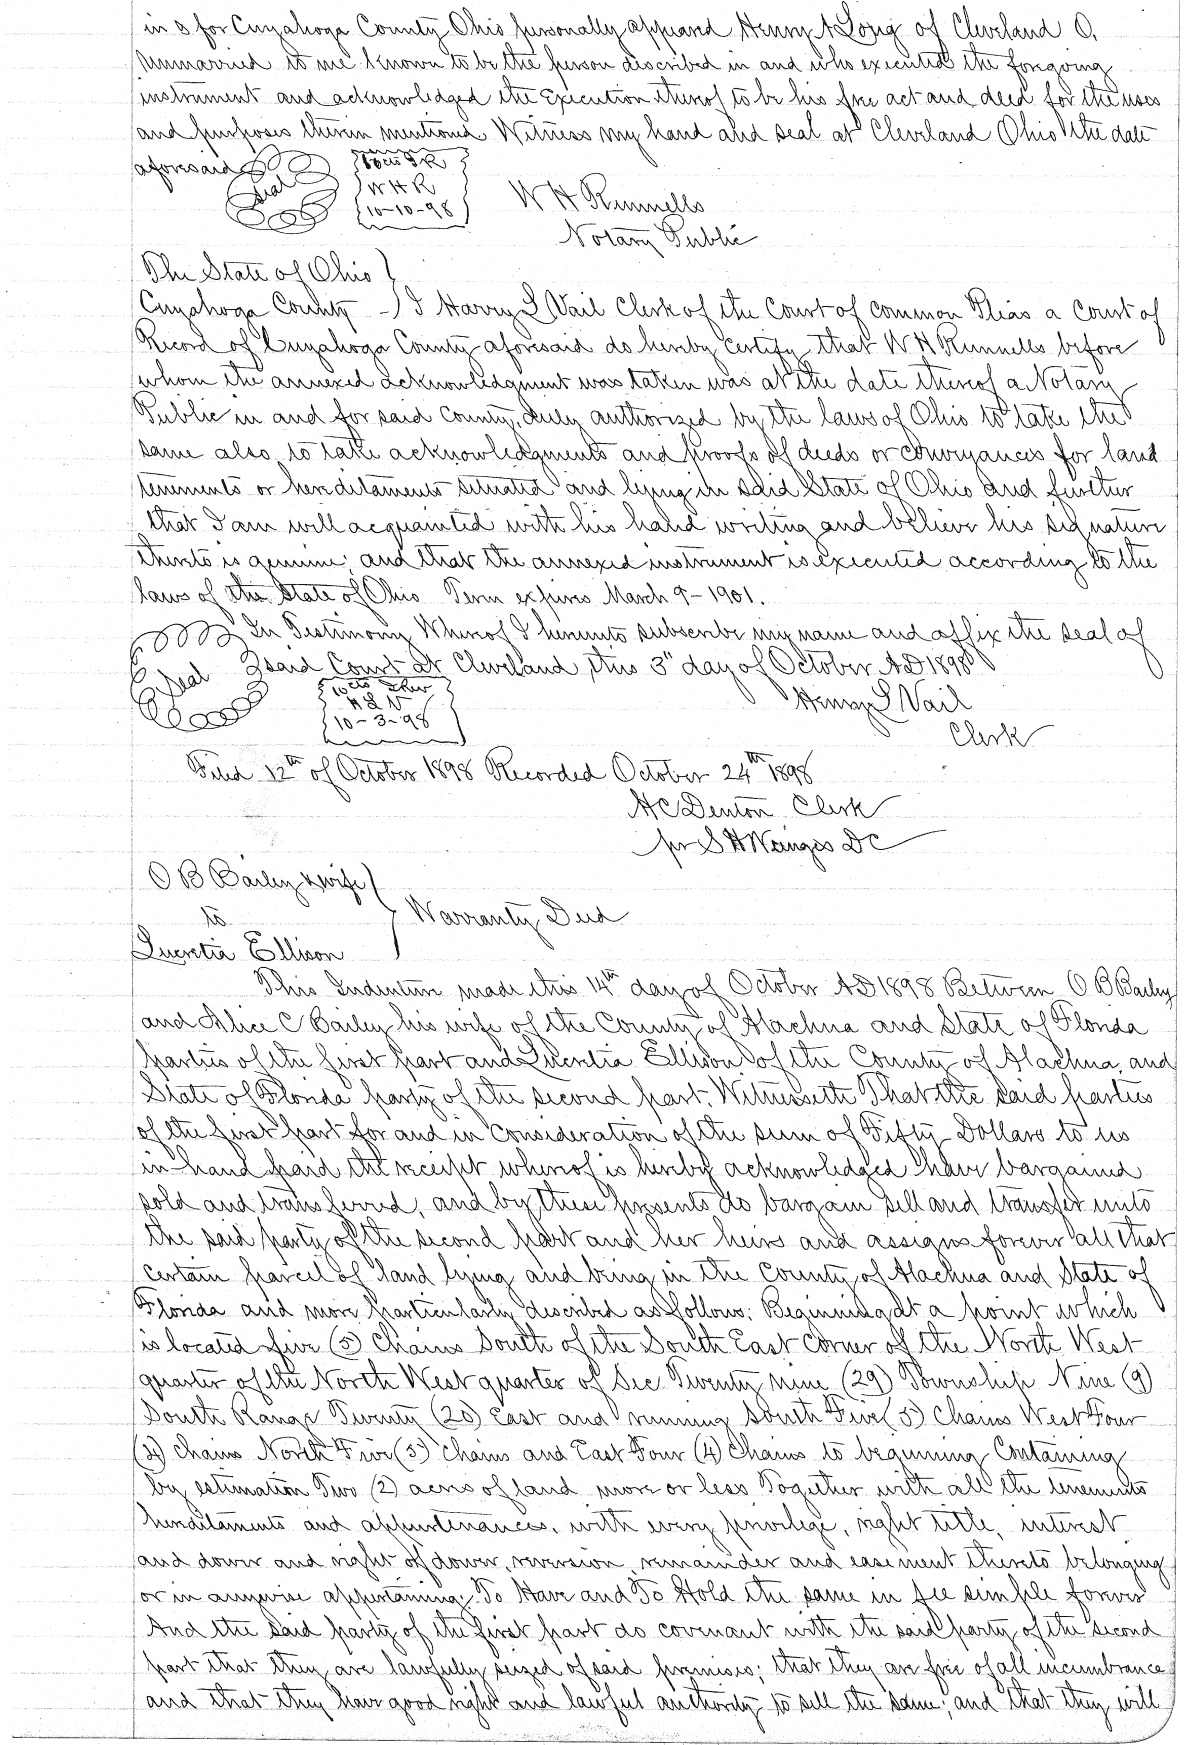 in & for Cuyahoga County Ohio personally appeared Henry A Long of Cleveland O,
Unmarried to me known to be the person described in and who executed the foregoing
instrument and acknowledged the Execution thereof to be his free act and deed for the uses
and purposes therein mentioned Witness my hand and seal at Cleveland Ohio the date
aforesaid
Seal
10cts I R
W H R
10-10-98
W H Runnells
Notary Public
The State of Ohio }
Cuyahoga County } I Harry L Vail Clerk of the Court of Common Pleas a Court of
Record of Cuyahoga County aforesaid do hereby certify that W H Runnells before
whom the annexed acknowledgment was taken was at the date thereof a Notary
Public in and for said County, duly authorized by the laws of Ohio to take the
same also to take acknowledgments and proofs of deeds or conveyances for land
tenements or hereditaments situated and lying in said State of Ohio and further
that I am well acquainted with his hand writing and believe his signature
thereto is genuine; and that the annexed instrument is executed according to the
laws of the State of Ohio Term expires March 9-1901.
In Testimony Whereof I hereunto subscribe my name and affix the seal of
Seal } said Court at Cleveland, this 3" day of October AD 1898
10cts
H L V
10-3-98
Henry L Vail
Clerk
Filed 12th of October 1898 Recorded October 24th 1898
H C Denton Clerk
pr S H Wienges DC
O B Bailey & wife }
to } Warranty Deed
Lucretia Ellison
This Indenture made this 14th day of October AD 1898 Between O B Bailey
and Alice C Bailey his wife of the County of Alachua and State of Florida
parties of the first part and Lucretia Ellison of the County of Alachua, and
State of Florida party of the second part. Witnesseth That the said parties
of the first part for and in consideration of the sum of Fifty Dollars to us
in hand paid the receipt whereof is hereby acknowledged have bargained
sold and transferred, and by these presents do bargain sell and transfer unto
the said party of the second part and her heirs and assigns forever all that
certain parcel of land lying and being in the County of Alachua and State of
Florida and more particularly described as follows: Beginning at a point which
is located five (5) Chains South of the South East Corner of the North West
quarter of the North West quarter of Sec Twenty nine (29) Township Nine (9)
South Range Twenty (20) East and running South Five (5) Chains West Four
(4) Chains North Five (5) Chains and East Four (4) Chains to beginning Containing
by estimation Two (2) acres of land more or less Together with all the tenements
hereditaments and appurtenances, with every privilege, right title, interest
and dower and right of dower, reversion, remainder and easement thereto belonging
or in anywise appertaining; To Have and To Hold the same in fee simple forever
And the said party of the first part do covenant with the said party of the second
part that they are lawfully seized of said premises; that they are free of all incumbrance
and that they have good right and lawful authority to sell the same; and that they will